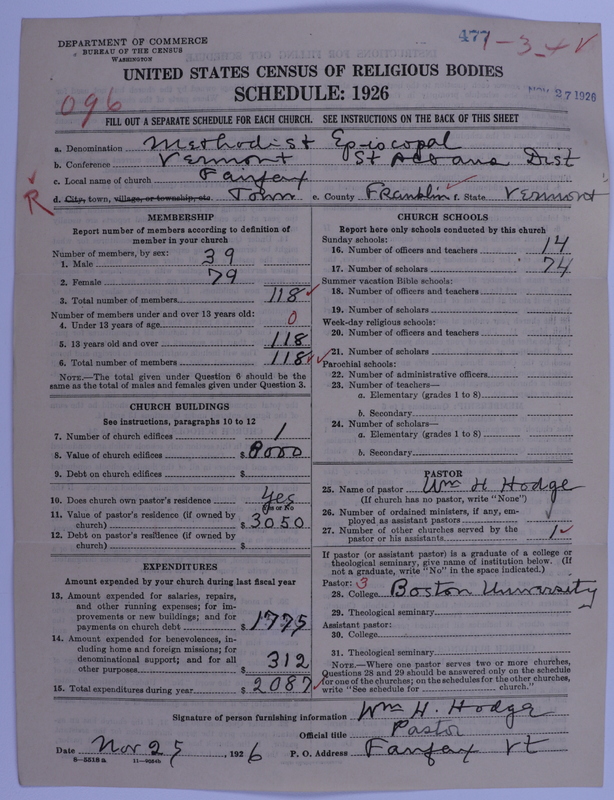 DEPARTMENT OF COMMERCE
BUREAU OF THE CENSUS
WASHINGTON
477 1-3-4 V
UNITED STATES CENSUS OF RELIGIOUS BODIES
SCHEDULE: 1926
NOV 27 1926
096
FILL OUT A SEPARATE SCHEDULE FOR EACH CHURCH. SEE INSTRUCTIONS ON THE BACK OF THIS SHEET
a. Denomination Methodist Episcopal
b. Conference Vermont St Albans Dist
c. Local name of church Fairfax
R
d. City, town, village, or township, etc Town e. County Franklin f. State Vermont
MEMBERSHIP
Report number of members according to definition of
member in your church
Number of members, by sex:
1. Male 39
2. Female 79
3. Total number of members 118
Number of members under and over 13 years old:
4. Under 13 years of age 0
5. 13 years old and over 118
6. Total number of members 118
NOTE.—The total given under Question 6 should be
the same as the total of males and females given under Question 3.
CHURCH BUILDINGS
See instructions, paragraphs 10 to 12
7. Number of church edifices 1
8. Value of church edifices $ 8000
9. Debt on church edifices $
10. Does church own pastor's residence Yes
(Yes or No)
11. Value of pastor's residence (if owned by
church) $ 3050
12. Debt on pastor's residence (if owned by
church) $
EXPENDITURES
Amount expended by your church during last fiscal year
13. Amount expended for salaries, repairs,
and other running expenses; for im-
provements or new buildings; and for
payments on church debt $ 1775
14. Amount expended for benevolences, in-
cluding home and foreign missions; for
denominational support; and for all
other purposes $ 312
15. Total expenditures during year $ 2087
CHURCH SCHOOLS
Report here only schools conducted by this church
Sunday schools:
16. Number of officers and teachers 14
17. Number of scholars 74
Summer vacation Bible schools:
18. Number of officers and teachers
19. Number of scholars
Week-day religious schools:
20. Number of officers and teachers
21. Number of scholars
Parochial schools:
22. Number of administrative officers
23. Number of teachers—
a. Elementary (grades 1 to 8)
b. Secondary
24. Number of scholars—
a. Elementary (grades 1 to 8)
b. Secondary
PASTOR
25. Name of pastor Wm H. Hodge
(If church has no pastor, write "None")
26. Number of ordained ministers, if any, em-
ployed as assistant pastors
27. Number of other churches served by the
pastor or his assistants 1
If pastor (or assistant pastor) is a graduate of a college or
theological seminary, give name of institution below. (If
not a graduate, write "No" in the space indicated.)
Pastor: 3
28. College Boston University
29. Theological seminary
Assistant pastor:
30. College
31. Theological seminary
NOTE.—Where one pastor serves two or more churches,
Questions 28 and 29 should be answered only on the schedule
for one of the churches; on the schedules for the other churches,
write "See schedule for church."
Signature of person furnishing information Wm H. Hodge
Official title Pastor
Date Nov 25, 1926 P. O. Address Fairfax Vt
8—5518 a 11—9054b